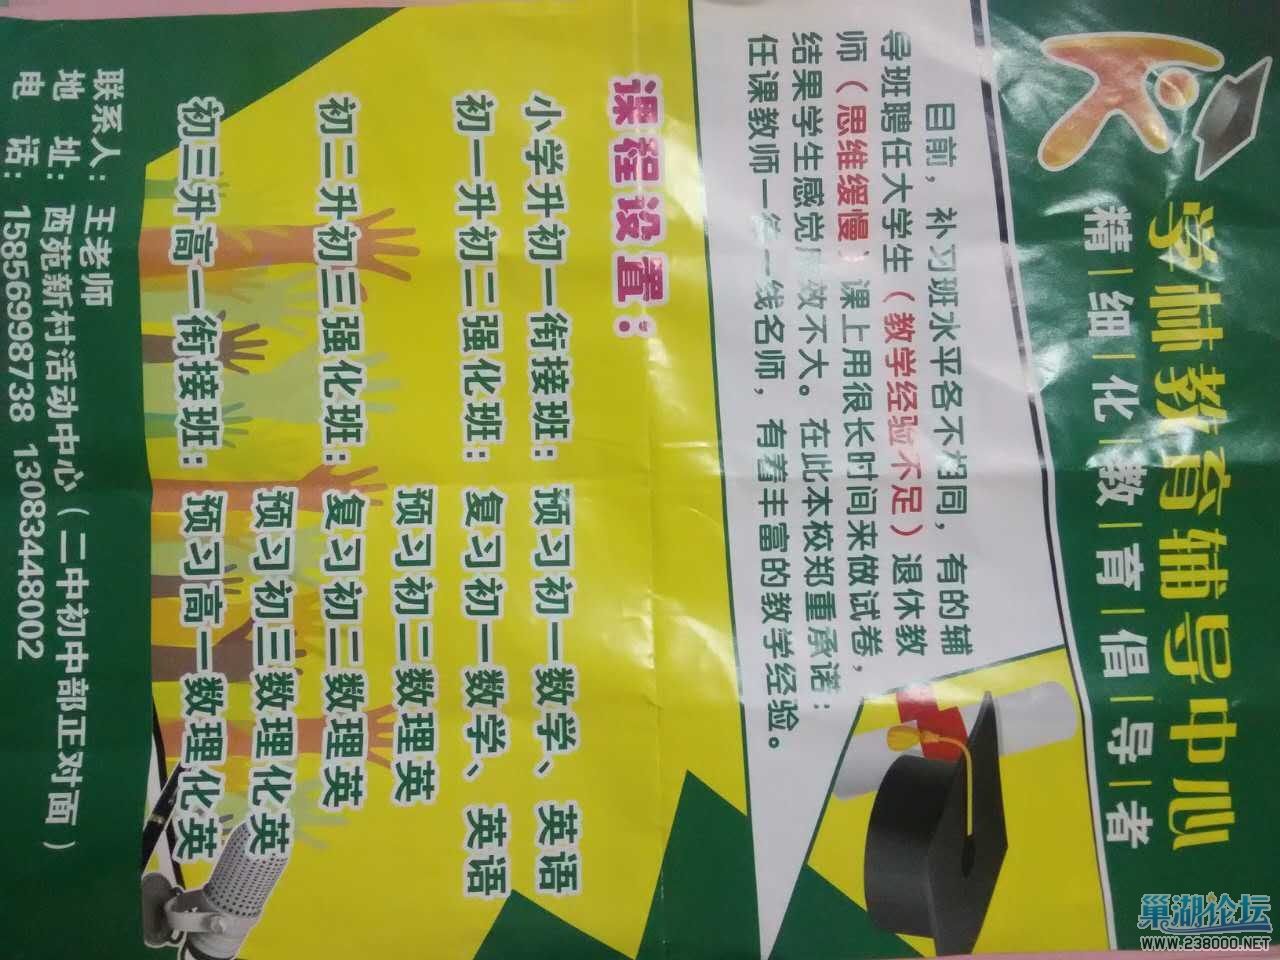 学林教育辅导中心
精|细|化|教|育|倡|导|者
目前，补习班水平各不相同，有的辅
导班聘任大学生（教学经验不足）退休教
师（思维缓慢）课上用很长时间来做试卷，
结果学生感觉效不大。在此本校郑重承诺：
任课教师一线名师，有着丰富的教学经验。
课程设置：
小学升初一衔接班：预习初一数学、英语
初一升初二强化班：复习初一数学、英语
预习初二数理英
初二升初三强化班：复习初二数理英
预习初三数理化英
初三升高一衔接班：预习高一数理化英
联系人：王老师
地 址：西苑新村活动中心（二中初中部正对面）
电 话：15856998738 13083448002
巢湖论坛
www.238000.NET